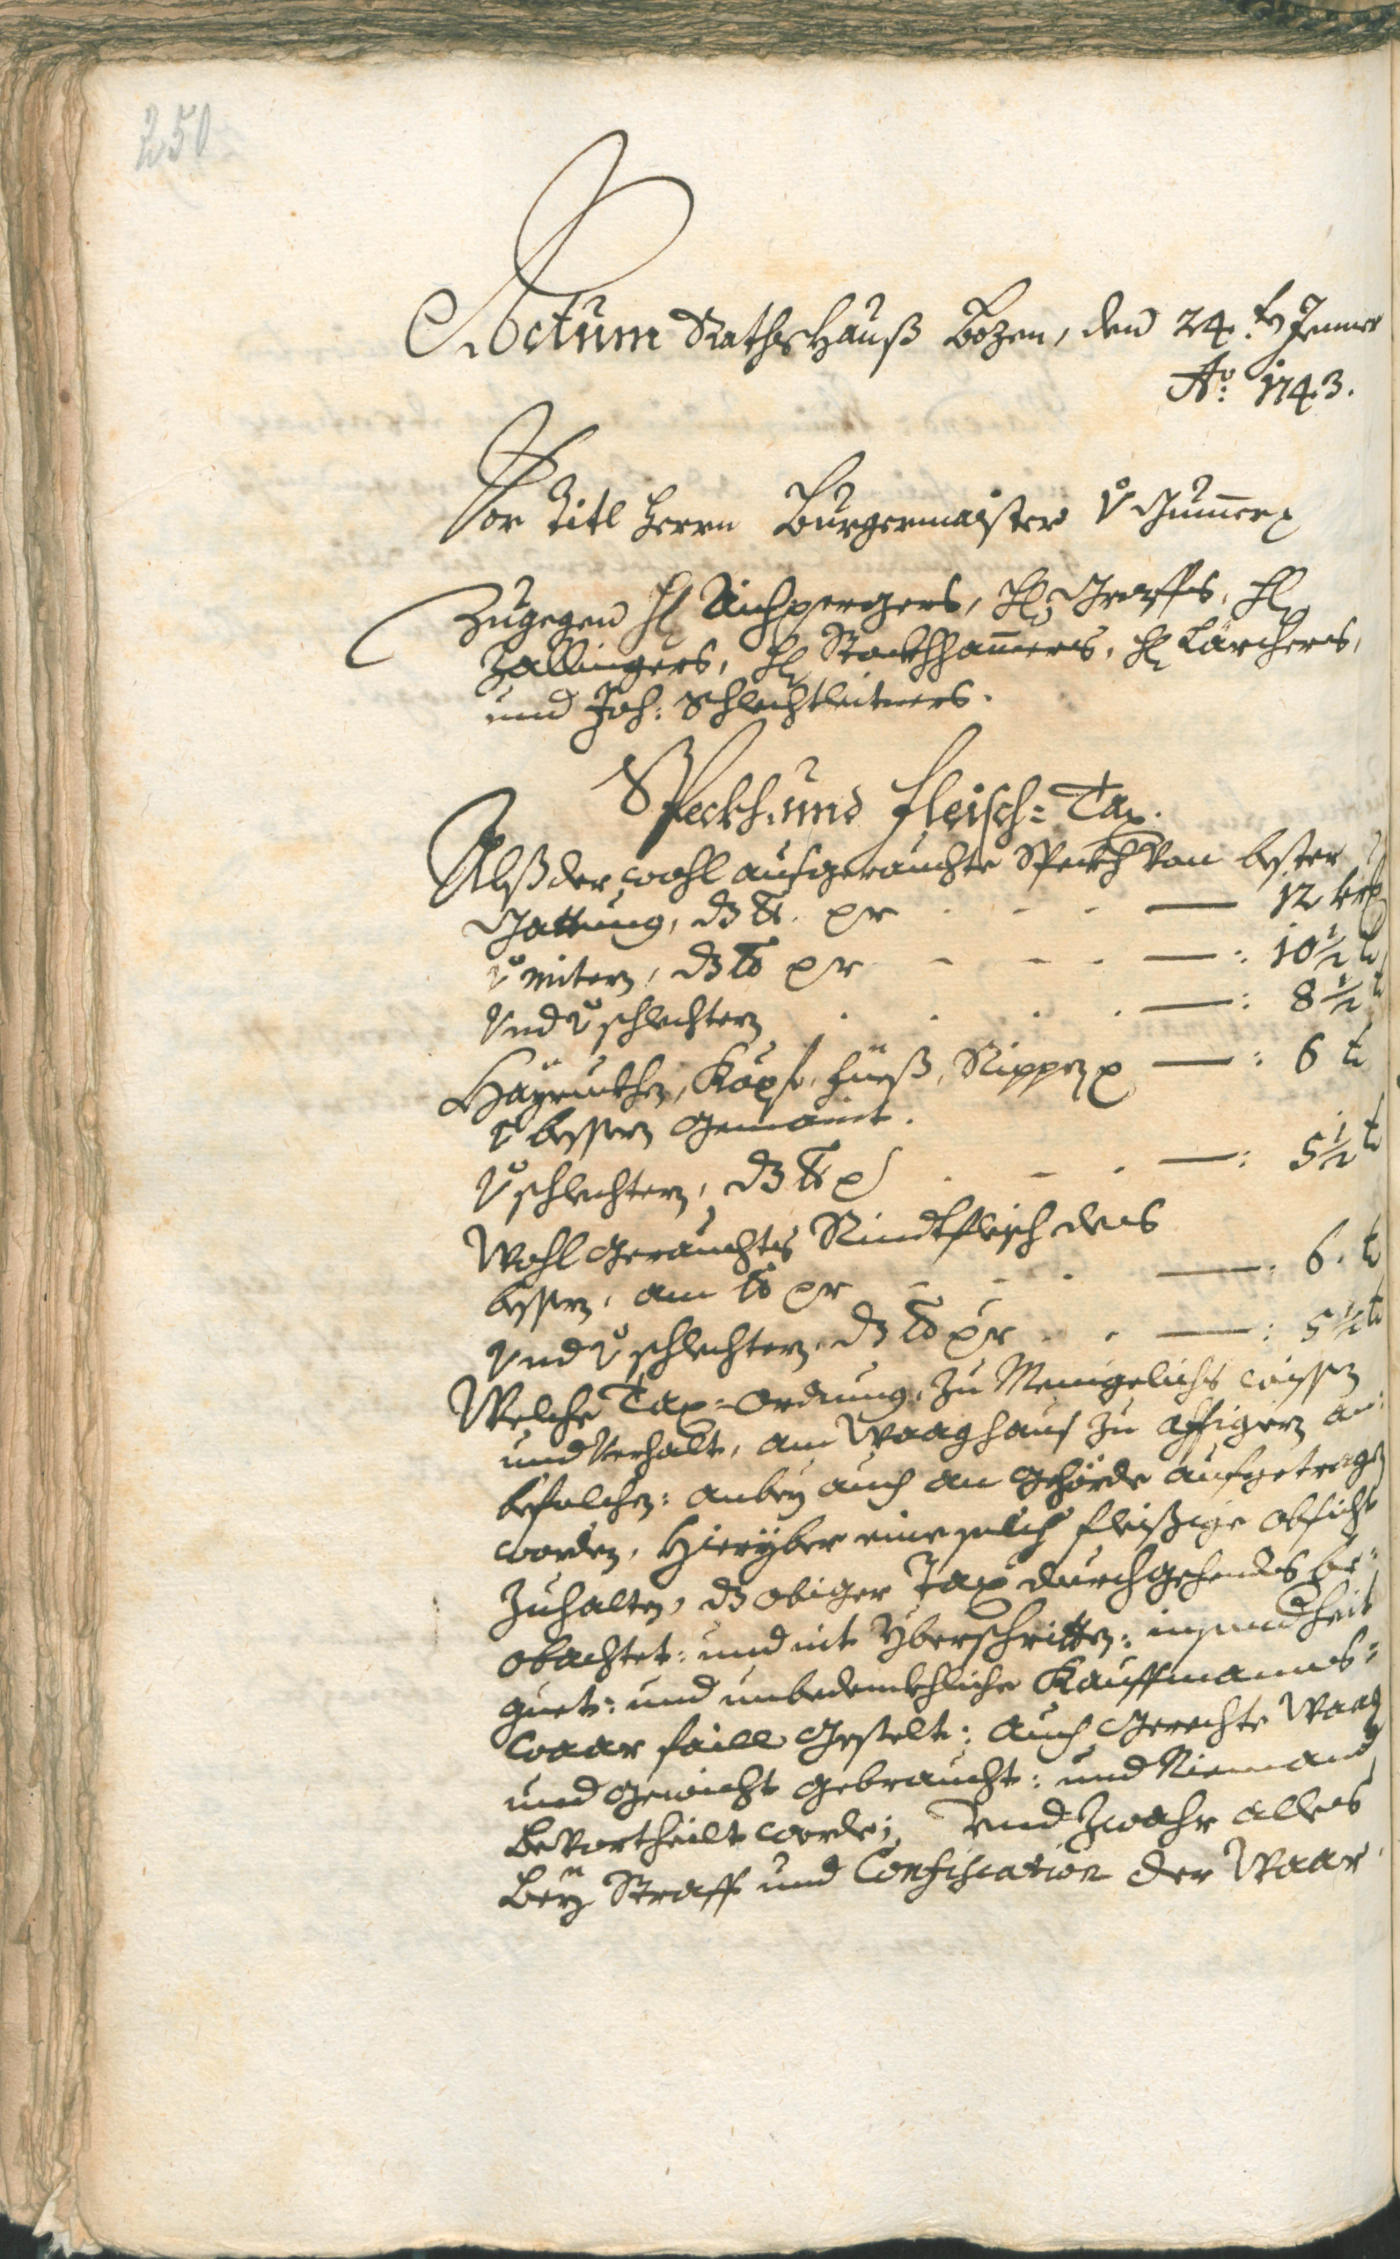 250
Actum RathsHauß Bozen, den 24.ty Jenner
Ao: 1743.
Vor Titl Herrn Burgermaister v Gumer
Zugegen H: Aichpergers, H: Graffs, H:
Zallingers, H: Stockhhamers, H: Lärchers,
und Joh: Schlechtleitners.
Speckh. und Fleisch=Tax.
Alß der wohl aufgerauchte Speckh von bester
Gattung, dz lb. pr . . . — 12 kr
v mitern, dz lb pr - - - - — : 10 1/2 t
Und v schlechtern . . . . — : 8 1/2 t
Köpf, Füeß, Rippen — : 6 t
v bessern
v schlechtern, dz lb p . - . — : 5 1/2 t
Wohl gerauchtes Rindtfleisch des
bessern, am lb pr - - . — : 6. t
Und v schlechtern, dz lb pr . . — : 5 1/2 t
Welche Tax=Ordnung, zu Menigelichs wissen
und verhalt, am Waaghaus zu affigiern an=
befolchen: anbey auch an gehörde aufgetragen
worden, Hieryber eine solch fleißige obsicht
zuhalten, dz obiger Tax durchgehendts be=
obachtet: und nit yberschritten:
guet: und unbedenckhliche Kauffmanns=
waar faill gestelt: auch gerechte Waag
und gewicht gebraucht: und Niemand
bevortheilt werde; Und zwahr alles
bey Straff und Confiscation der Waar.